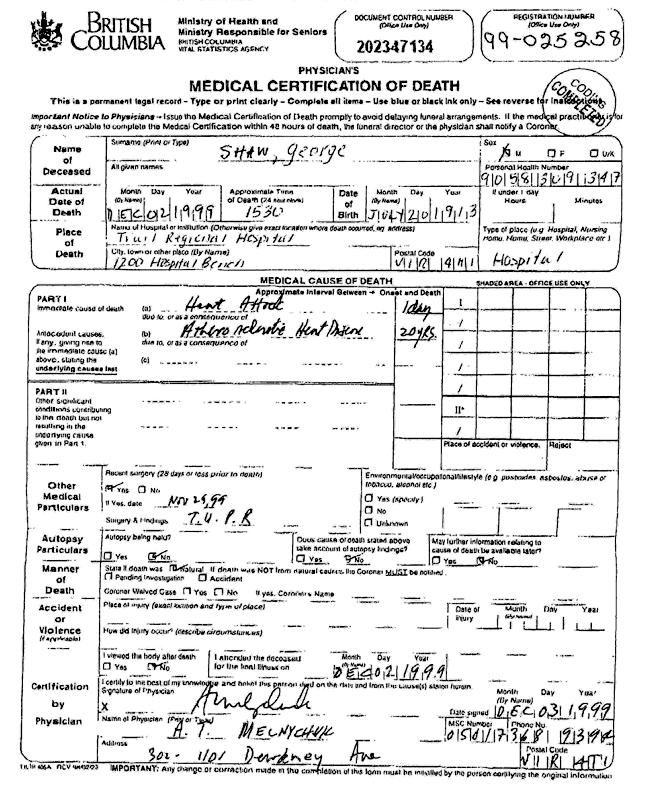 BRITISH COLUMBIA
Ministry of Health and
Ministry Responsible for Seniors
BRITISH COLUMBIA
VITAL STATISTICS AGENCY
DOCUMENT CONTROL NUMBER
(Office Use Only)
202347134
REGISTRATION NUMBER
(Office Use Only)
99-025258
PHYSICIAN'S
MEDICAL CERTIFICATION OF DEATH
CODING COMPLETED
This is a permanent legal record - Type or print clearly - Complete all items - Use blue or black ink only - See reverse for Instructions
Important Notice to Physicians - Issue the Medical Certification of Death promptly to avoid delaying funeral arrangements. If the medical practitioner is for
any reason unable to complete the Medical Certification within 48 hours of death, the funeral director or the physician shall notify a Coroner.
Name of Deceased
Surname (Print or Type)
SHAW, George
All given names
Sex
M F U/K
Personal Health Number
9058309347
Actual Date of Death
Month (By Name) Day Year
DEC 02 1999
Approximate Time of Death (24 hour clock)
1530
Date of Birth
Month (By Name) Day Year
JULY 20 1913
If under 1 day
Hours Minutes
Place of Death
Name of Hospital or Institution (Otherwise give exact location where death occurred, eg. address)
Trail Regional Hospital
City, town or other place (By Name)
1200 Hospital Bench
Postal Code
V1R 4M1
Type of place (e.g. Hospital, Nursing Home, Home, Street, Workplace etc.)
Hospital
MEDICAL CAUSE OF DEATH
SHADED AREA - OFFICE USE ONLY
Approximate Interval Between → Onset and Death
PART I
Immediate cause of death
(a) Heart Attack 1 day
due to, or as a consequence of
Antecedent causes, if any, giving rise to the immediate cause (a) above, stating the underlying causes last
(b) Atherosclerotic Heart Disease 20 yrs.
due to, or as a consequence of
(c)
I
PART II
Other significant conditions contributing to the death but not resulting in the underlying cause given in Part 1.
II*
Place of accident or violence.
Reject
Other Medical Particulars
Recent surgery (28 days or less prior to death)
Yes No
If Yes, date Nov 29, 99
Surgery & Findings T.U.P.R
Environmental/occupational/lifestyle (e.g. pesticides, asbestos, abuse of tobacco, alcohol etc.)
Yes (specify)
No
Unknown
Autopsy Particulars
Autopsy being held?
Yes No
Does cause of death stated above take account of autopsy findings?
Yes No
May further information relating to cause of death be available later?
Yes No
Manner of Death
State if death was Natural. If death was NOT from natural causes, the Coroner MUST be notified.
Pending Investigation Accident
Coroner Waived Case Yes No If yes, Coroner's Name
Accident or Violence
(if applicable)
Place of injury (exact location and type of place)
Date of Injury
Month Day Year
How did injury occur? (describe circumstances)
Certification by Physician
I viewed the body after death
Yes No
I attended the deceased for the final illness on
Month (By Name) Day Year
DEC 02 1999
I certify to the best of my knowledge and belief this person died on the date and from the cause(s) stated herein.
Signature of Physician
X
Date signed
Month (By Name) Day Year
DEC 03 1999
Name of Physician (Print or Type)
A. T. MELNYCHUK
MSC Number
Phone No.
Address
302 - 1101 Dewdney Ave
Postal Code
V1R 4T1
IMPORTANT: Any change or correction made in the completion of this form must be initialled by the person certifying the original information